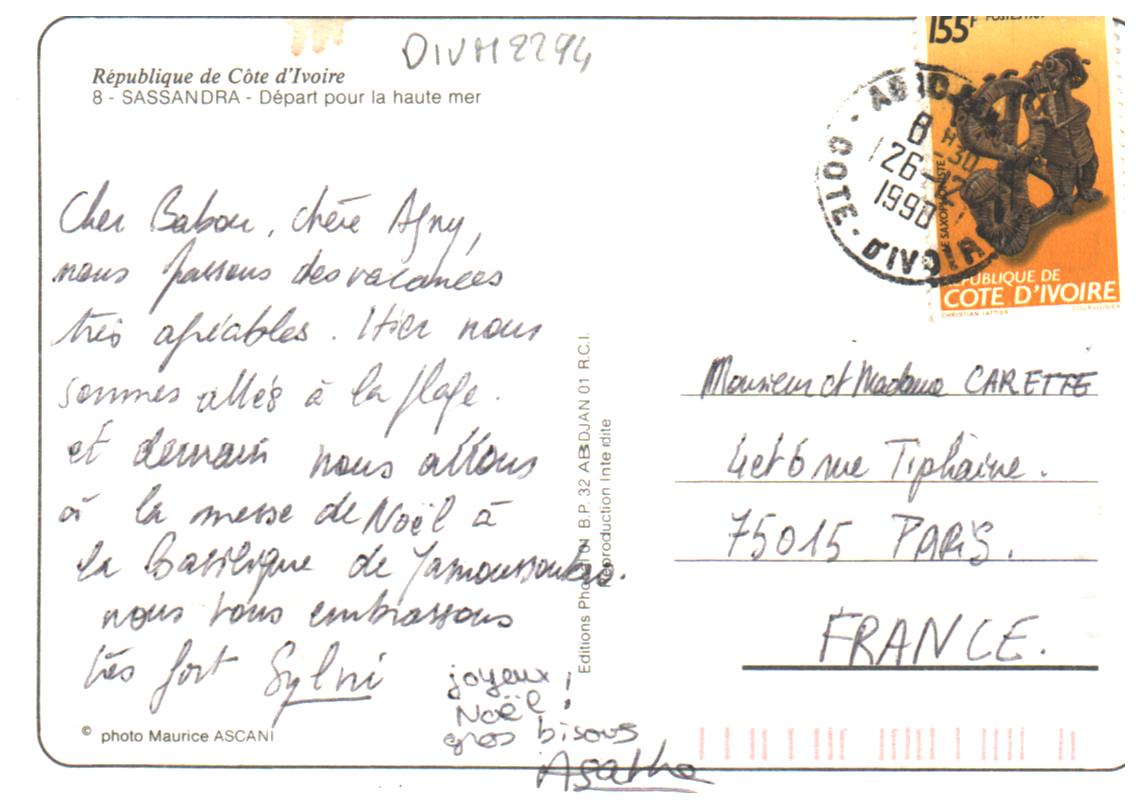 DIVM2294
République de Côte d'Ivoire
8 - SASSANDRA - Départ pour la haute mer
Cher Babou, chère Agny,
nous passons des vacances
très agréables. Hier nous
sommes allés à la plage.
et demain nous allons
à la messe de Noël à
la basilique de Yamoussoukro.
nous vous embrassons
très fort Sylvi
joyeux !
Noël !
gros bisous
Agathe
© photo Maurice ASCANI
Editions Photo 01 B.P. 32 ABIDJAN 01 R.C.I.
Reproduction Interdite
155F
LE SAXOPHONISTE
RÉPUBLIQUE DE
CÔTE D'IVOIRE
CHRISTIAN LATTIER COURVOISIER
ABIDJAN
8 H30
26-12
1990
COTE-D'IVOIRE
Monsieur et Madame CARETTE
4et6 rue Tiphaine.
75015 PARIS.
FRANCE.